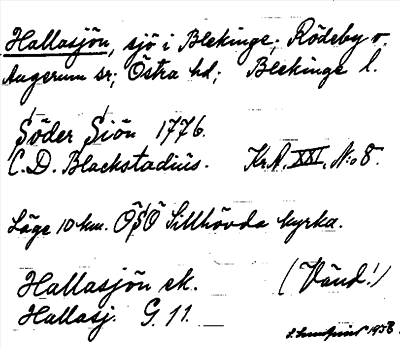 Hallasjön, sjö i Blekinge; Rödeby o.
Augerum sr; Östra hd; Blekinge l.
Söder Siön 1776.
C. D. Blackstadius. Kr.A. XXI, N:o 8.
Läge 10 km. OSO Sillhövda kyrka.
Hallasjön ek. (Vänd!)
Hallasj. G. 11.
1938.